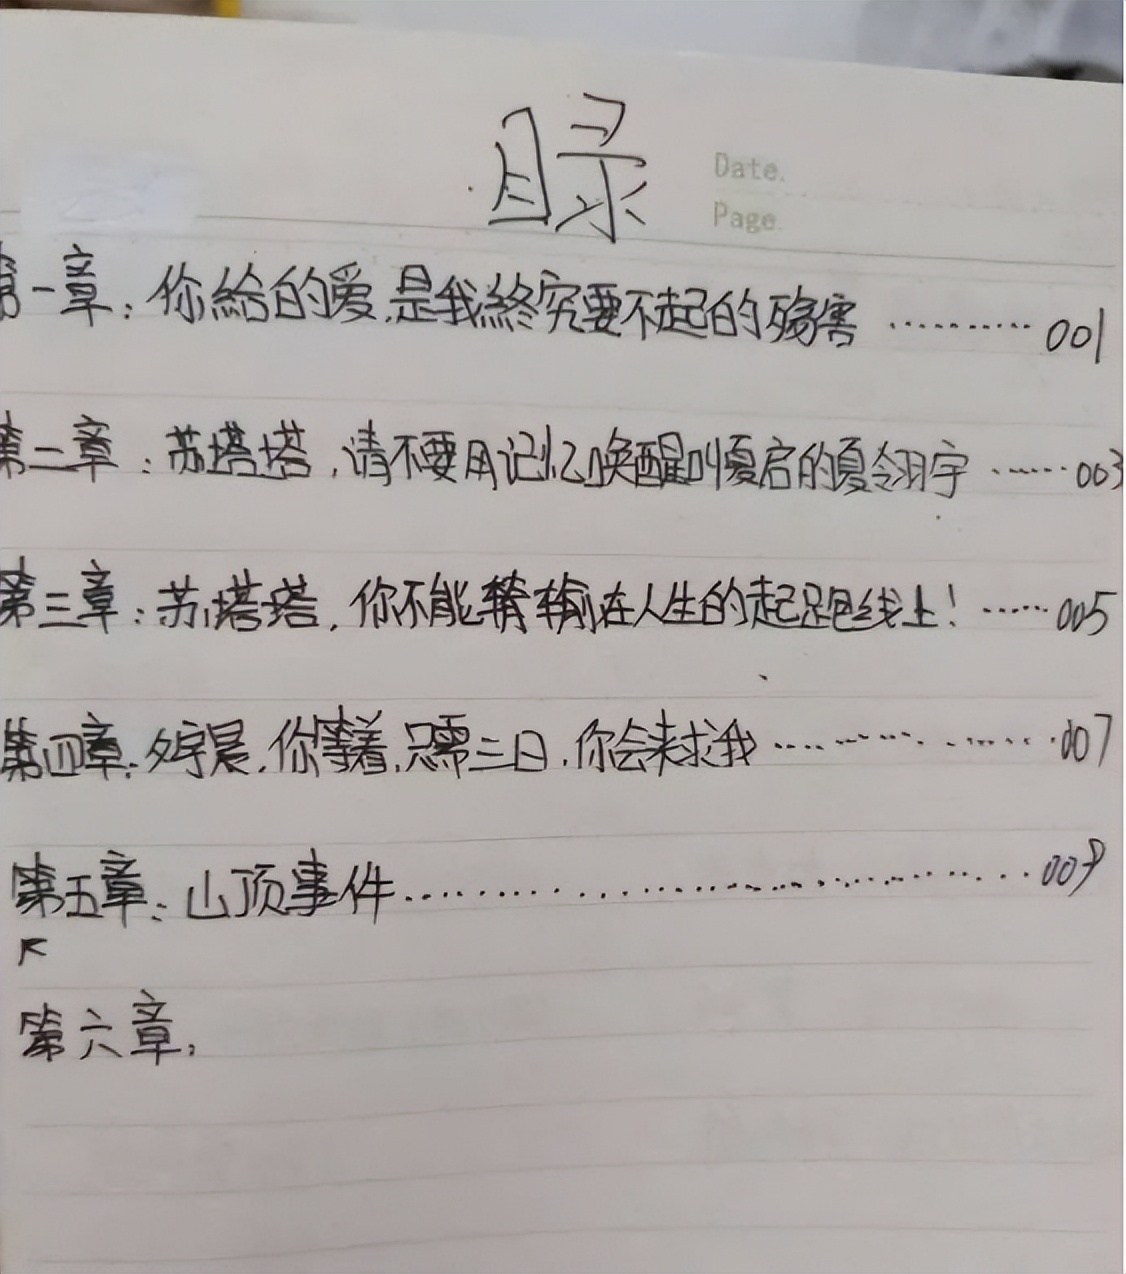 目录
Date.
Page.
第一章：你給的爱,是我終究要不起的殇害 ………… 001
第二章：苏塔塔,请不要用记忆唤醒叫夏启的夏翎宇 …… 003
第三章：苏塔塔,你不能输在人生的起跑线上！ …… 005
第四章：夕宇晨,你等着,只需三日,你会来求我 ………… 007
第五章：山顶事件 ………… 009
第六章：